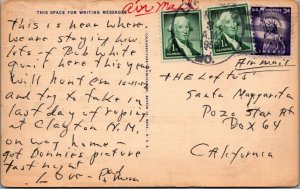 THIS SPACE FOR WRITING MESSAGES
Air Mail
This is near where
we are staying now
lots of Bob White
quail here this year
will hunt em
and try to take in
last day of roping
at Clayton N.M.
on way home -
got Donnies picture
fast night
Love - Dad
U.S. POSTAGE
1¢
1¢
3¢
Air mail
The Loftus
Santa Margarita
Pozo Star Rt
Box 64
California